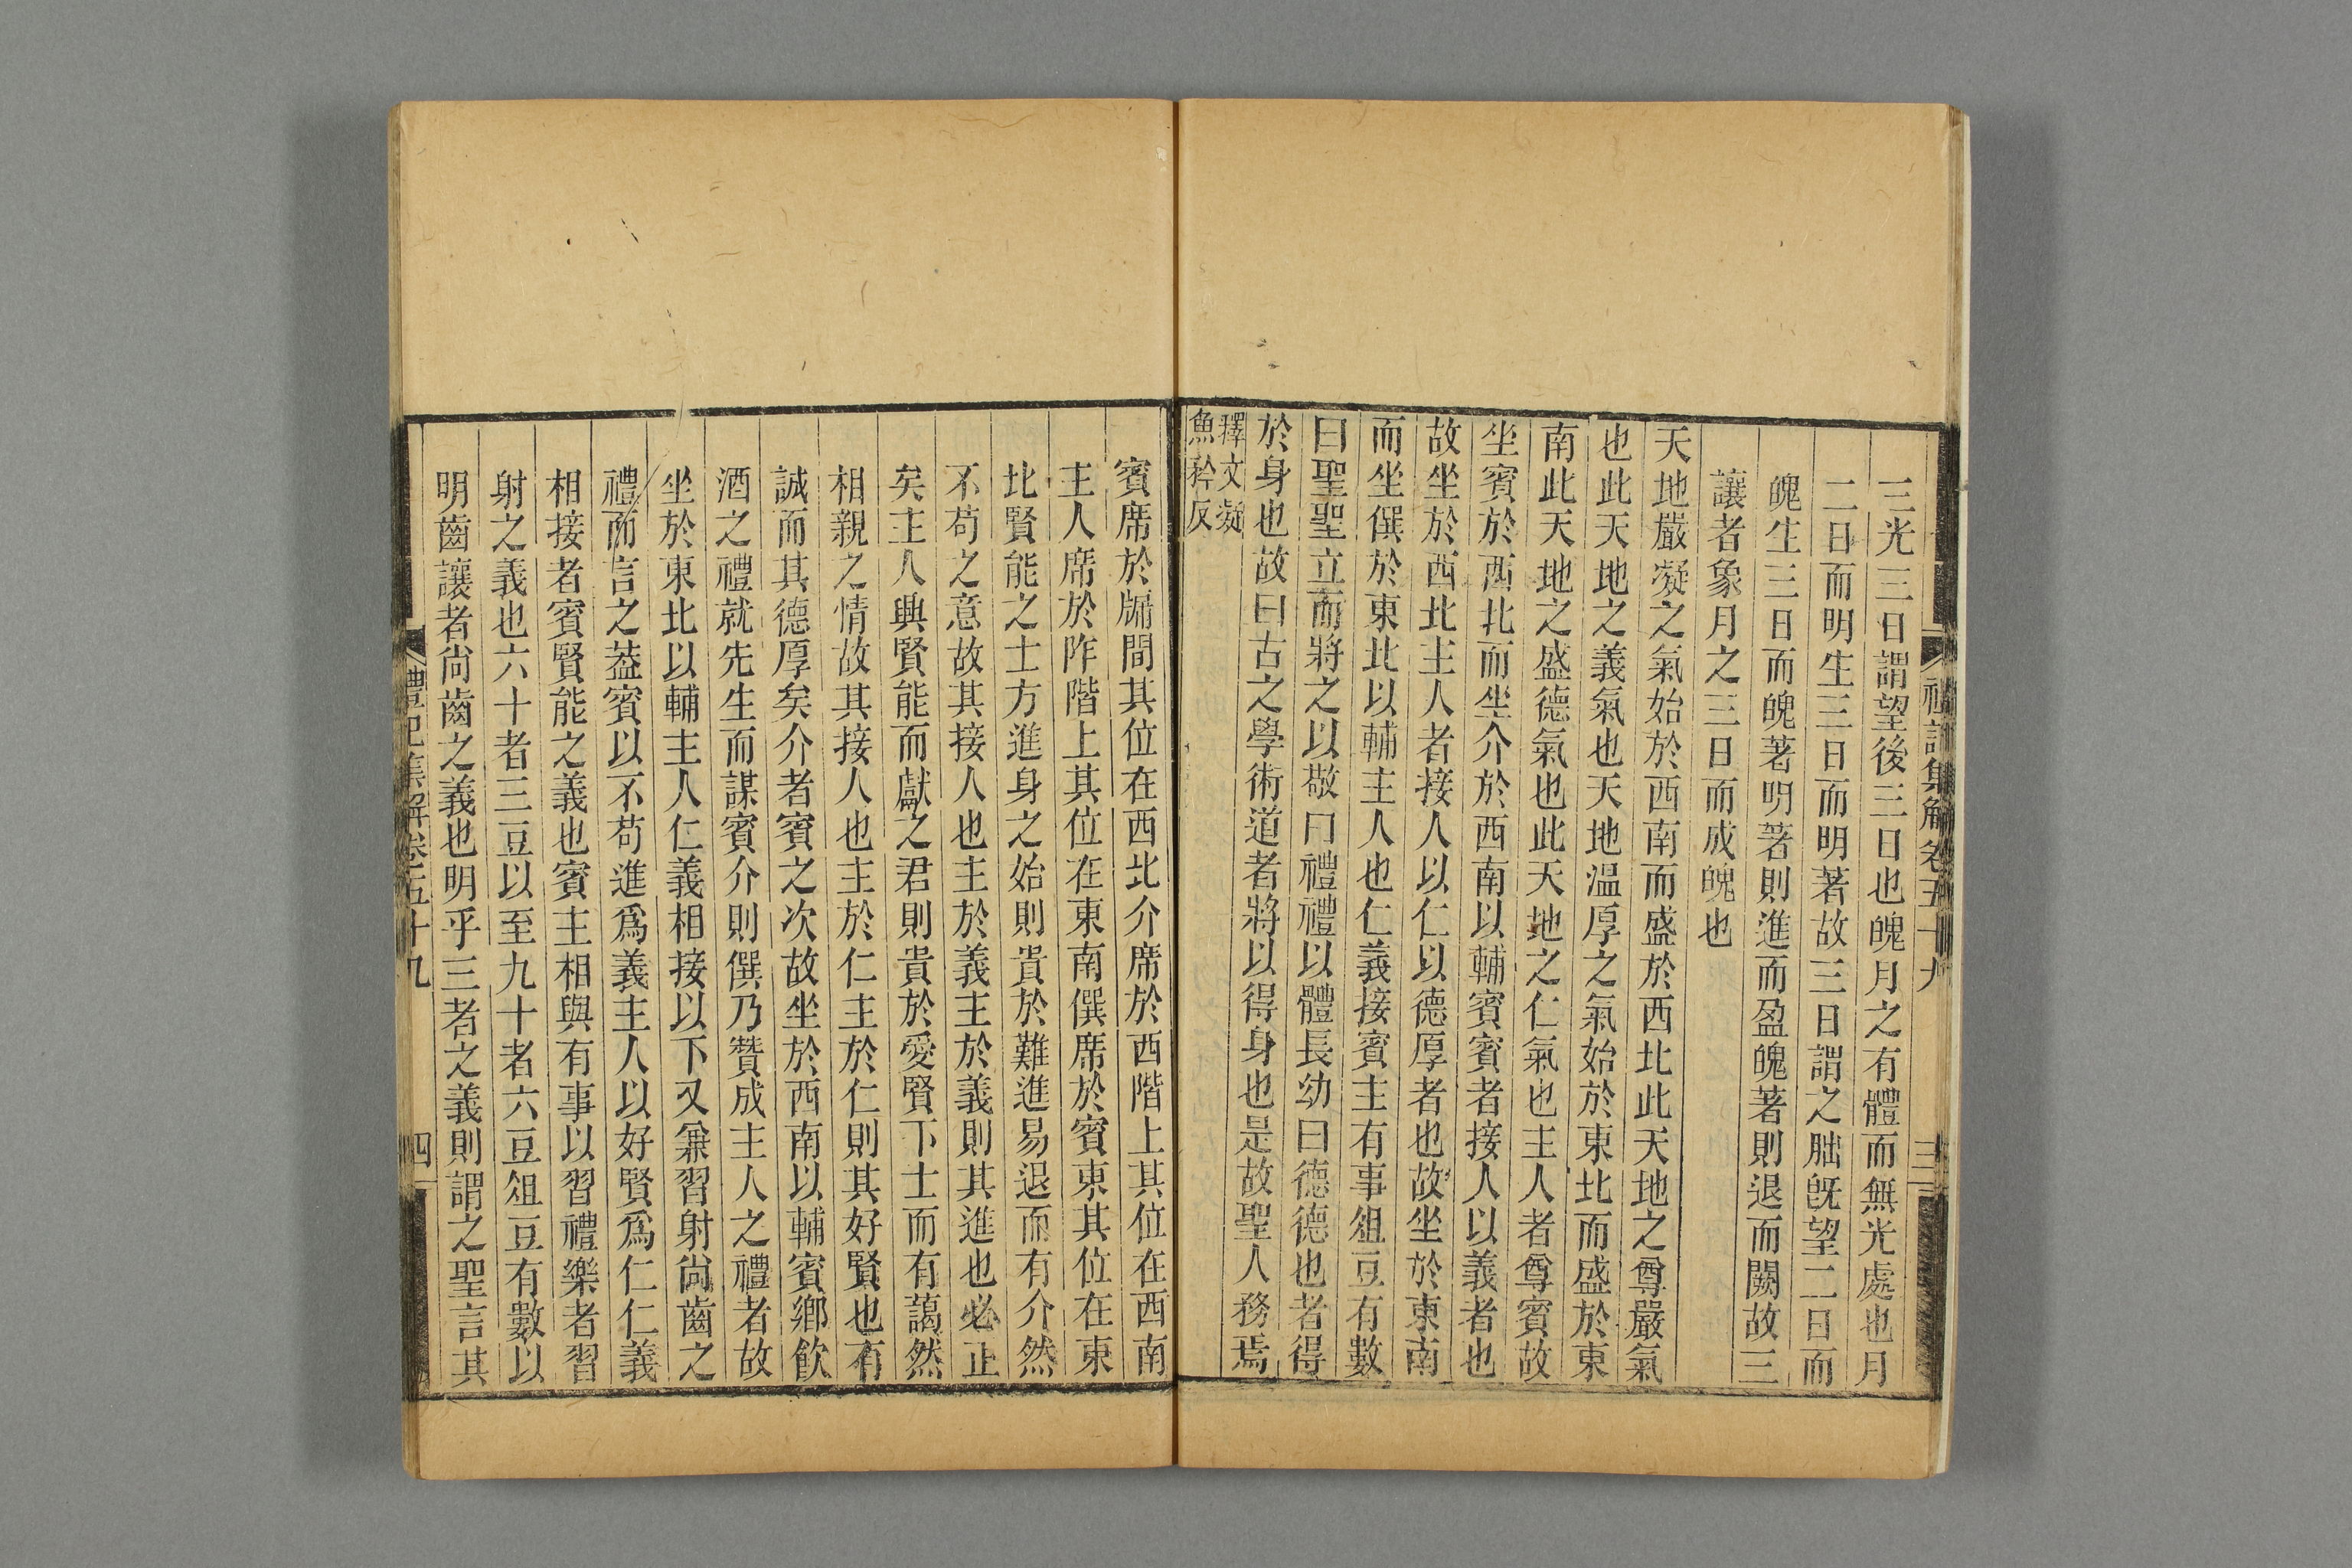 禮記集解卷五十九
三
三光三日謂望後三日也魄月之有體而無光處也月
二日而明生三日而明著故三日謂之朏旣望二日而
魄生三日而魄著明著則進而盈魄著則退而闕故三
讓者象月之三日而成魄也
天地嚴凝之氣始於西南而盛於西北此天地之尊嚴氣
也此天地之義氣也天地溫厚之氣始於東北而盛於東
南此天地之盛德氣也此天地之仁氣也主人者尊賓故
坐賓於西北而坐介於西南以輔賓賓者接人以義者也
故坐於西北主人者接人以仁以德厚者也故坐於東南
而坐僎於東北以輔主人也仁義接賓主有事俎豆有數
曰聖聖立而將之以敬曰禮禮以體長幼曰德德也者得
於身也故曰古之學術道者將以得身也是故聖人務焉
釋文凝
魚矜反
賓席於牖間其位在西北介席於西階上其位在西南
主人席於阼階上其位在東南僎席於賓東其位在東
北賢能之士方進身之始則貴於難進易退而有介然
不苟之意故其接人也主於義主於義則其進也必正
矣主人興賢能而獻之君則貴於愛賢下士而有藹然
相親之情故其接人也主於仁主於仁則其好賢也有
誠而其德厚矣介者賓之次故坐於西南以輔賓鄉飲
酒之禮就先生而謀賓介則僎乃贊成主人之禮者故
坐於東北以輔主人仁義相接以下又兼習射尚齒之
禮而言之蓋賓以不苟進爲義主人以好賢爲仁仁義
相接者賓賢能之義也賓主相與有事以習禮樂者習
射之義也六十者三豆以至九十者六豆俎豆有數以
明齒讓者尚齒之義也明乎三者之義則謂之聖言其
禮記集解卷五十九
四